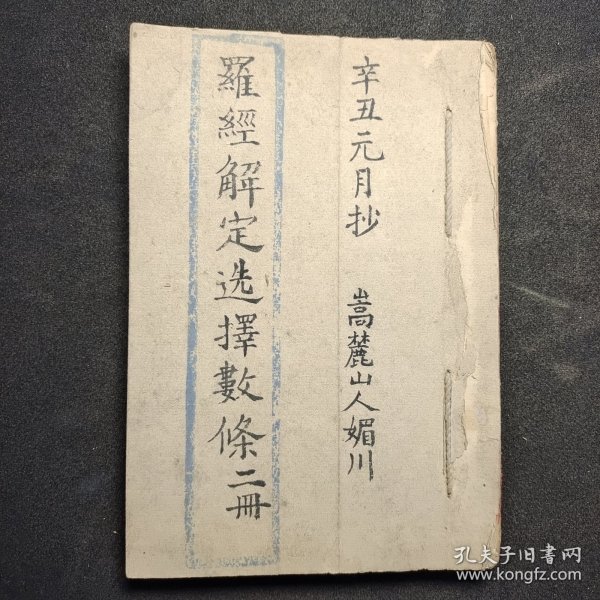 辛丑元月抄 嵩麓山人媚川
羅經解定选擇數條二冊
孔夫子旧書网
www.kongfz.com